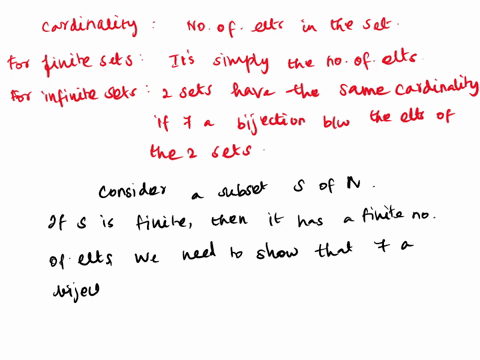 Cardinality : No. of. elts in the set.
For finite sets : It's simply the no. of. elts.
For infinite sets : 2 sets have the same cardinality
if ∃ a bijection b/w the elts of
the 2 sets.
Consider a subset S of N.
If S is finite, then it has a finite no.
of elts we need to show that ∃ a
bijec